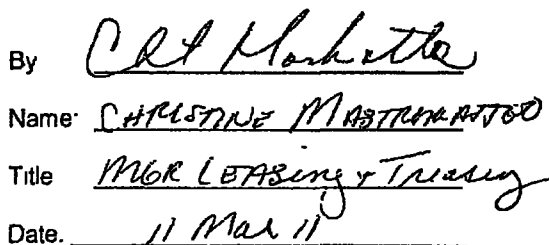 By
Name: CHRISTINE MASTROMATTEO
Title MGR LEASING & Treasury
Date. 11 Mar 11